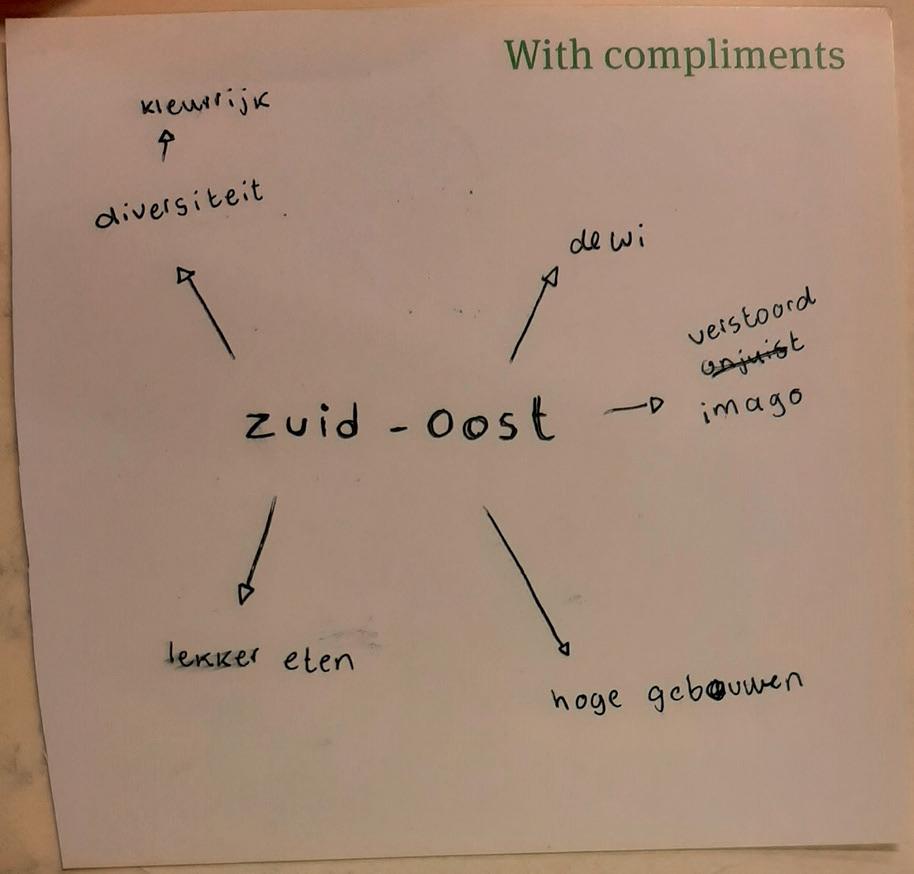 With compliments
kleurrijk
diversiteit
de wi
verstoord
onjuist
imago
zuid - Oost
lekker eten
hoge gebouwen